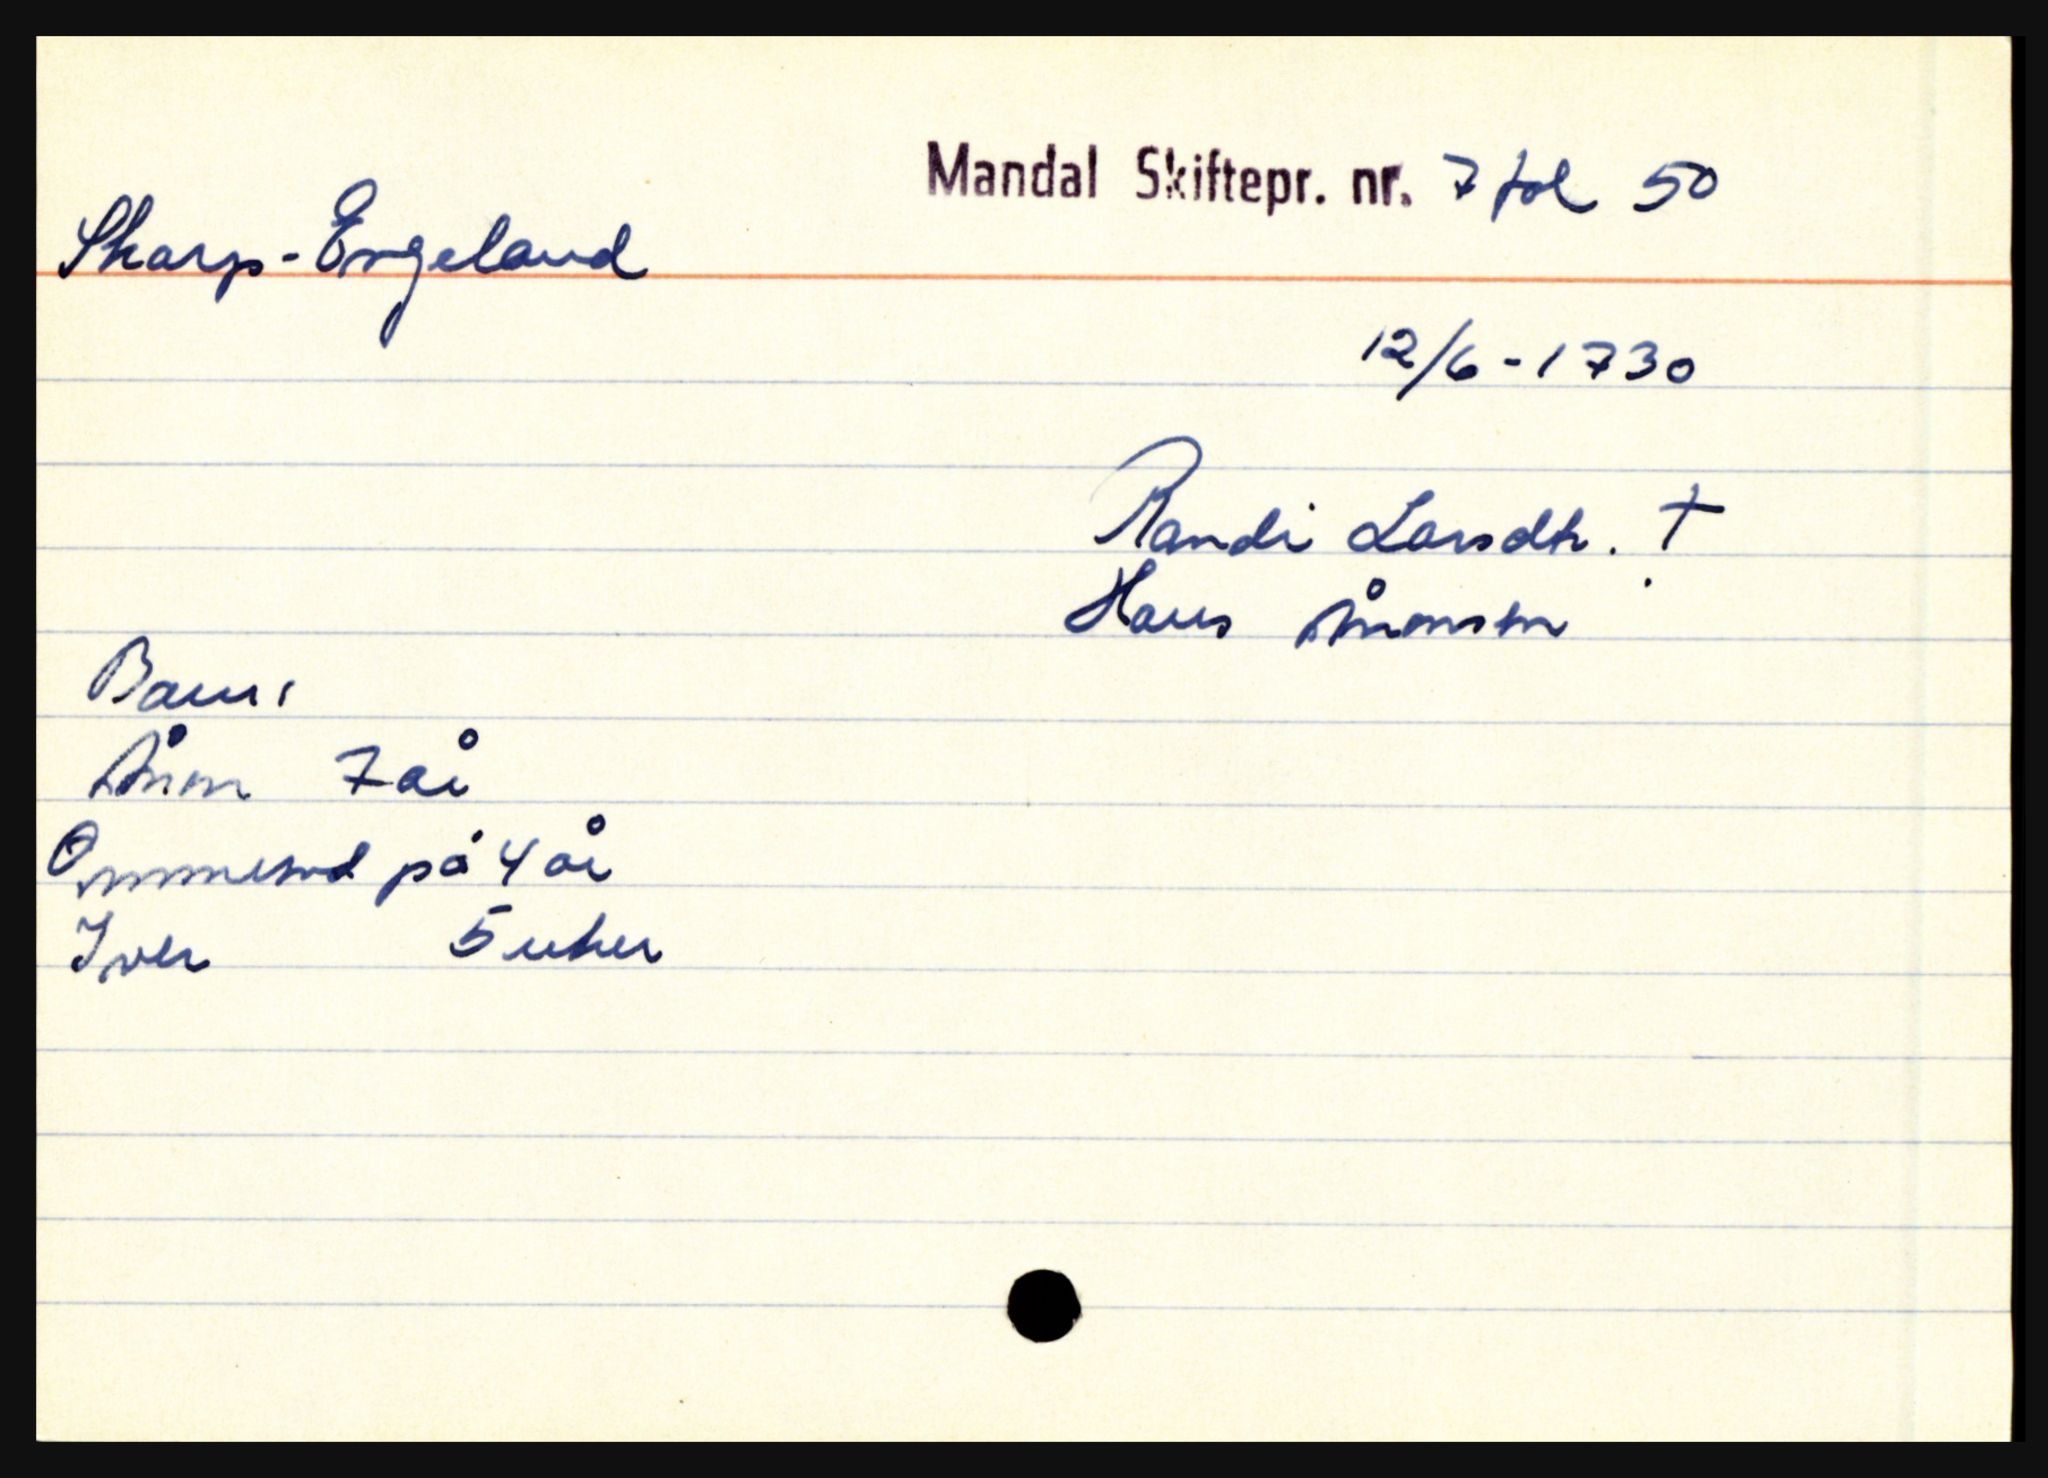 Mandal Skiftepr. nr. 7 fol 50
Skarp-Engeland
12/6-1730
Randi Larsdtr. †
Hans Ånonsen
Barn:
Ånon 7 år
Ommund på 4 år
Iver 5 uker